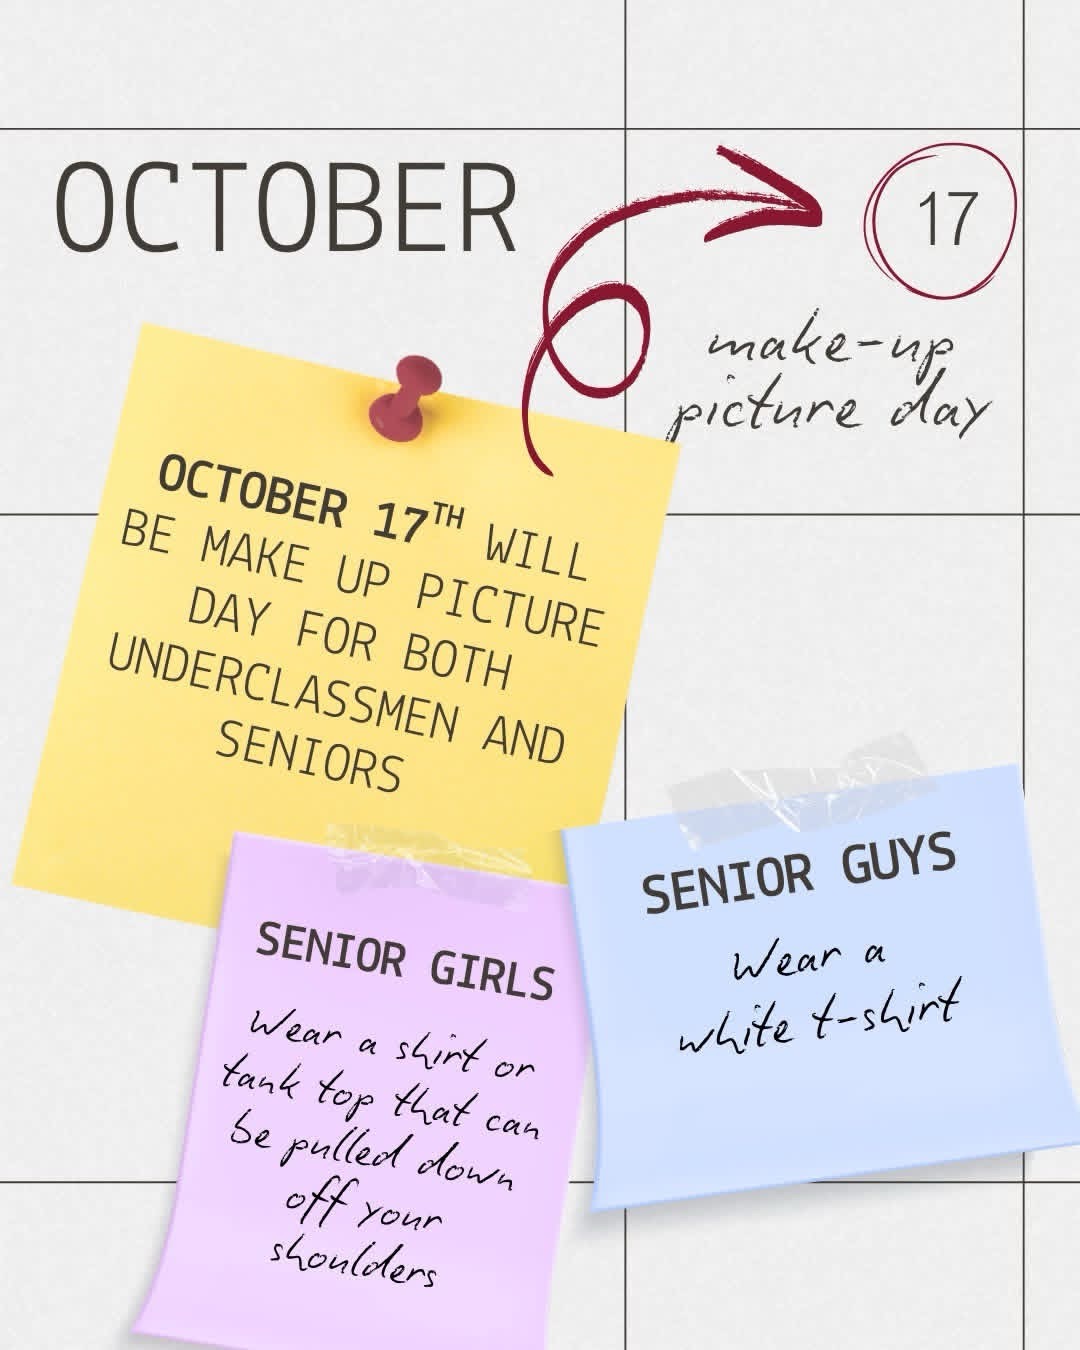 OCTOBER
17
make-up
picture day
OCTOBER 17TH WILL
BE MAKE UP PICTURE
DAY FOR BOTH
UNDERCLASSMEN AND
SENIORS
SENIOR GIRLS
Wear a shirt or
tank top that can
be pulled down
off your
shoulders
SENIOR GUYS
Wear a
white t-shirt